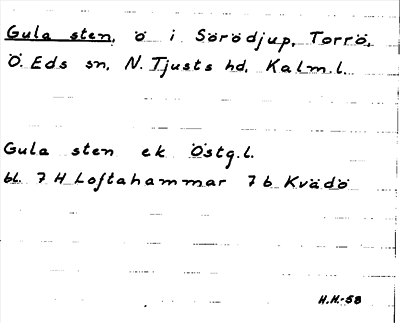 Gula sten, ö i Sörödjup, Torrö,
Ö. Eds sn, N. Tjusts hd, Kalm.l.
Gula sten ek Östg.l.
bl. 7 H Loftahammar 7 b Kvädö
H.H.-58